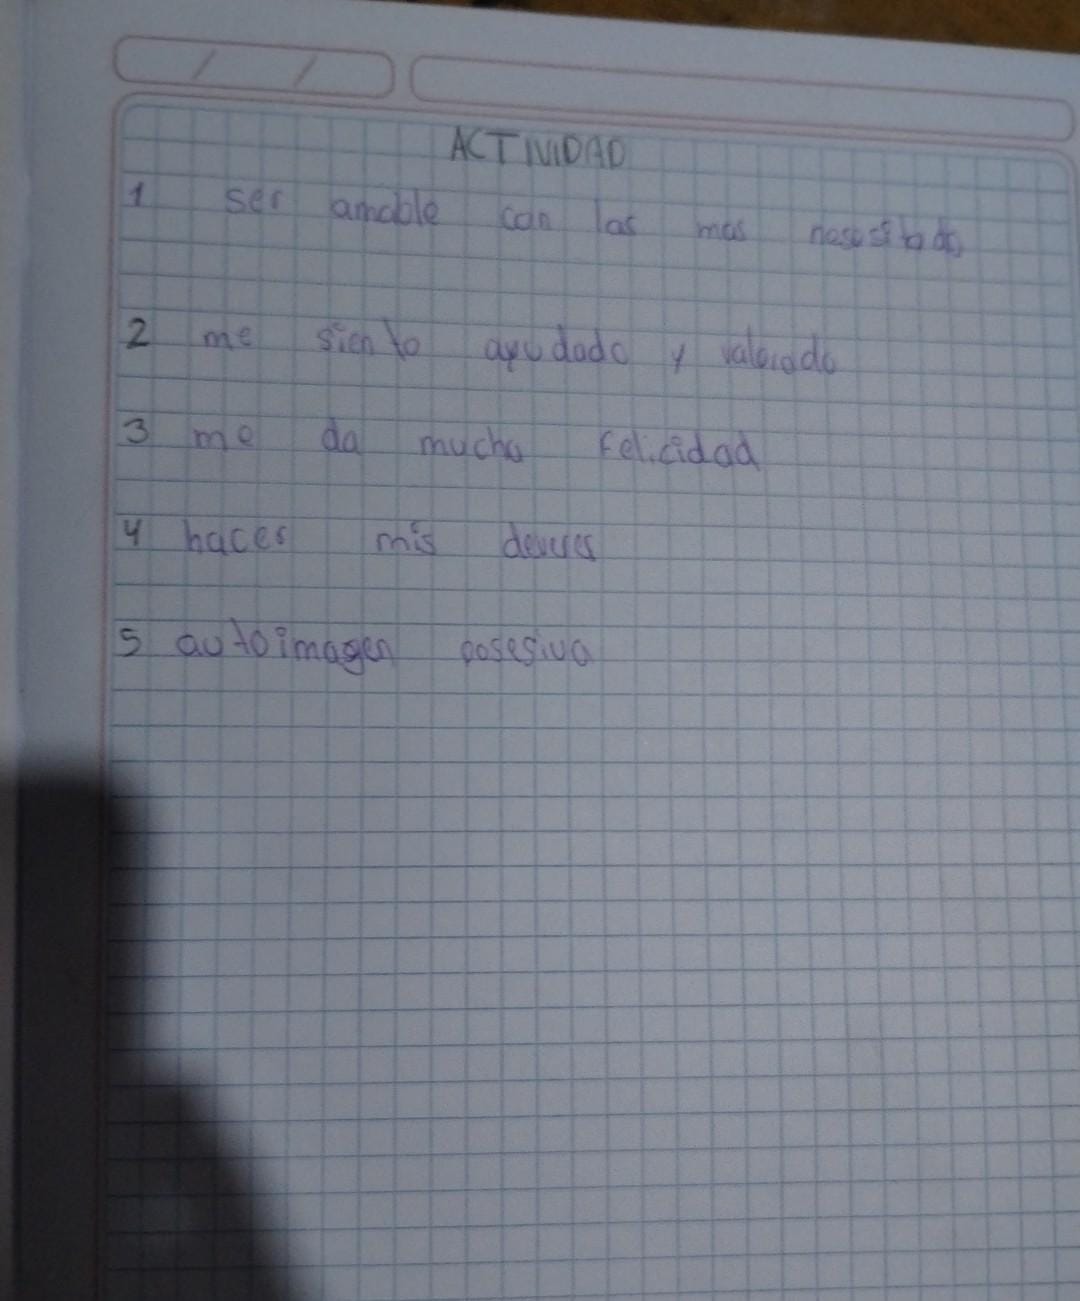 ACTIVIDAD
1 ser amable con las mas nesesitado
2 me siento ayudado y valorado
3 me da mucha felicidad
4 hacer mis deveres
5 autoimagen posesiva